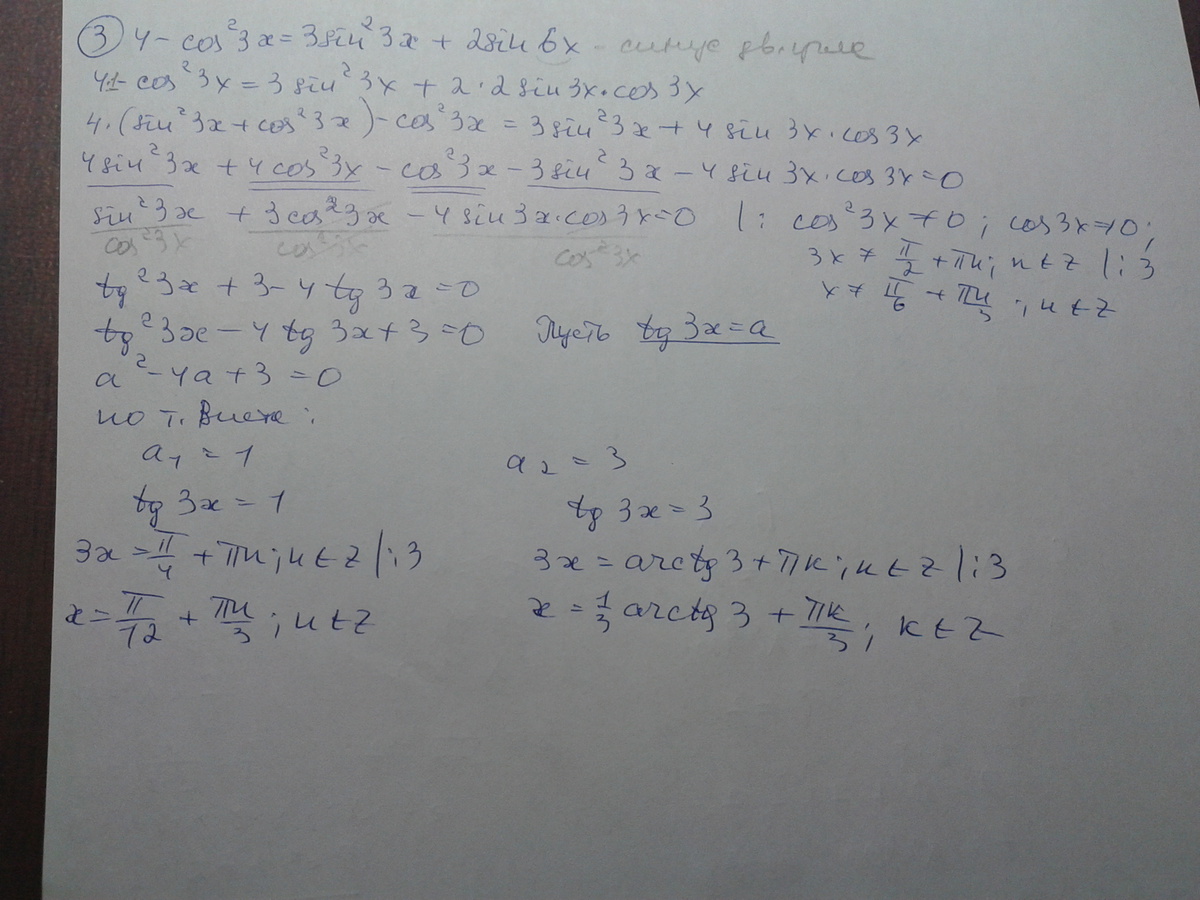 ③ 4 - cos²3x = 3sin²3x + 2sin 6x - синус дв. угла
4·1 - cos²3x = 3 sin²3x + 2·2 sin 3x·cos 3x
4·(sin²3x + cos²3x) - cos²3x = 3sin²3x + 4 sin 3x·cos 3x
4sin²3x + 4cos²3x - cos²3x - 3sin²3x - 4 sin 3x·cos 3x = 0
sin²3x/cos²3x + 3cos²3x/cos²3x - 4 sin 3x·cos 3x/cos²3x = 0 |: cos²3x ≠ 0; cos 3x ≠ 0;
3x ≠ π/2 + πn; n ∈ Z |:3
tg²3x + 3 - 4 tg 3x = 0
x ≠ π/6 + πn/3; n ∈ Z
tg²3x - 4 tg 3x + 3 = 0 Пусть tg 3x = a
a² - 4a + 3 = 0
по т. Виета:
a₁ = 1 a₂ = 3
tg 3x = 1 tg 3x = 3
3x = π/4 + πn; n ∈ Z |:3 3x = arctg 3 + πк; к ∈ Z |:3
x = π/12 + πn/3; n ∈ Z x = 1/3 arctg 3 + πк/3; к ∈ Z